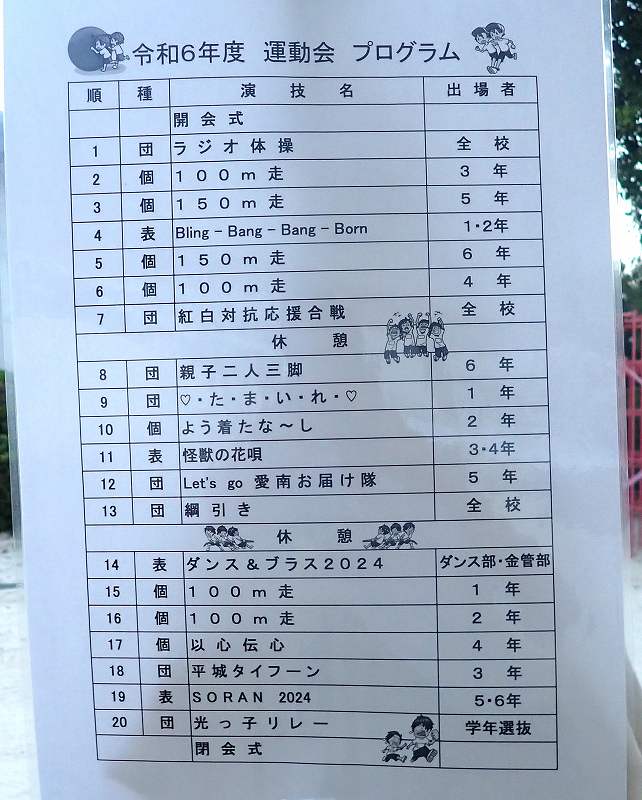 令和６年度 運動会 プログラム
順 種 演技名 出場者
開会式
1 団 ラジオ体操 全校
2 個 １００ｍ走 3年
3 個 １５０ｍ走 5年
4 表 Bling－Bang－Bang－Born 1・2年
5 個 １５０ｍ走 6年
6 個 １００ｍ走 4年
7 団 紅白対抗応援合戦 全校
休憩
8 団 親子二人三脚 6年
9 団 ♡・た・ま・い・れ・♡ 1年
10 個 よう着たな～し 2年
11 表 怪獣の花唄 3・4年
12 団 Let's go 愛南お届け隊 5年
13 団 綱引き 全校
休憩
14 表 ダンス＆ブラス２０２４ ダンス部・金管部
15 個 １００ｍ走 1年
16 個 １００ｍ走 2年
17 個 以心伝心 4年
18 団 平城タイフーン 3年
19 表 SORAN 2024 5・6年
20 団 光っ子リレー 学年選抜
閉会式